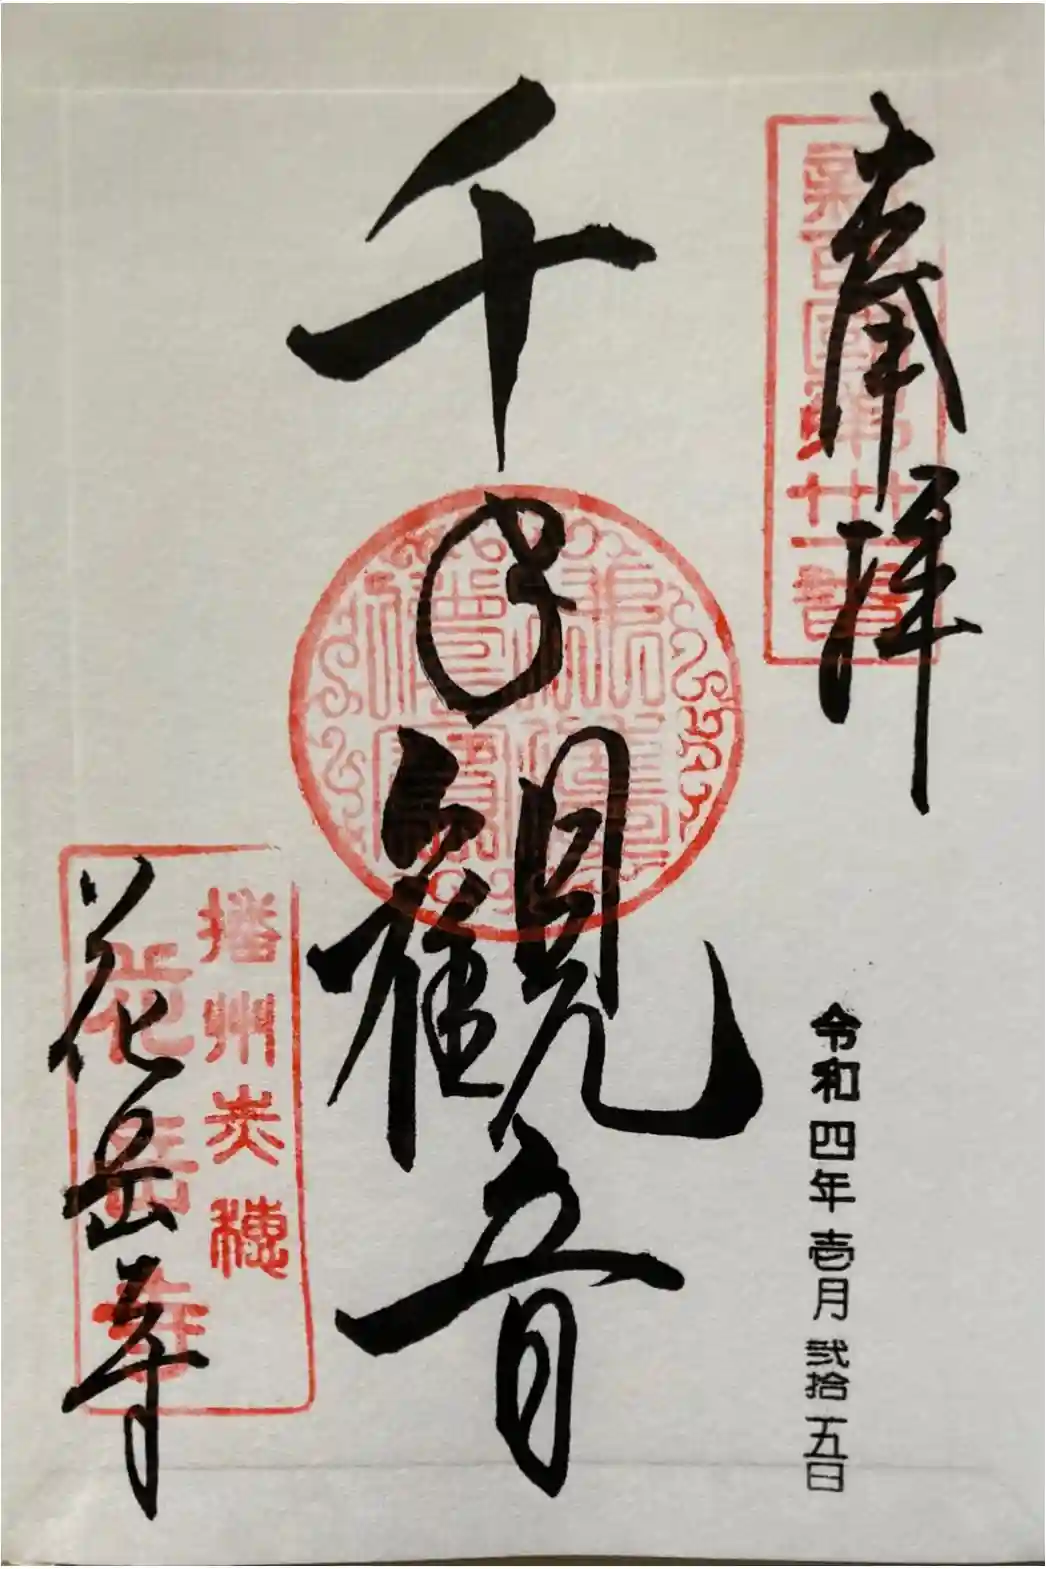 奉拝
新西國第卅一番
令和四年壱月弐拾五日
千手観音
播州赤穂
花岳寺
花岳寺